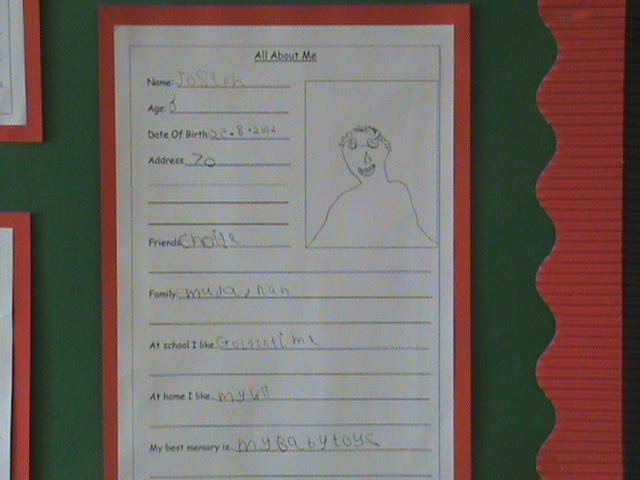 All About Me
Name: Joseph
Age: 6
Date Of Birth 22.8.2002
Address 70
Friends
Family: muda, nan
At school I like Goldenti me
At home I like my wii
My best memory is my Baby toys